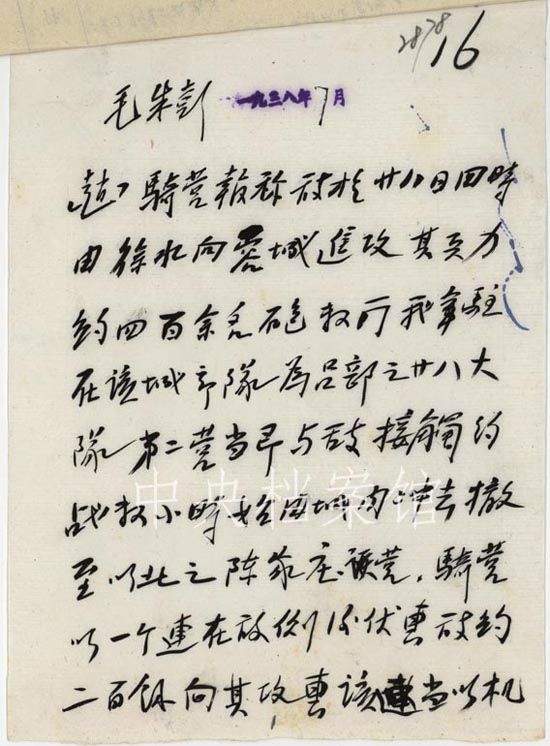 16
毛朱彭 一九三八年7月
騎营報称敌於廿八日四時
由徐水向容城進攻其兵力
约四百余名砲数门我軍駐
在该城部隊為吕部之廿八大
隊第二营当即与敌接觸约
战数小時始由城内冲出撤
至以北之陈家庄该营、騎营
以一个連在敌侧后伏击敌约
二百余向其攻击该連当以机
中央档案馆